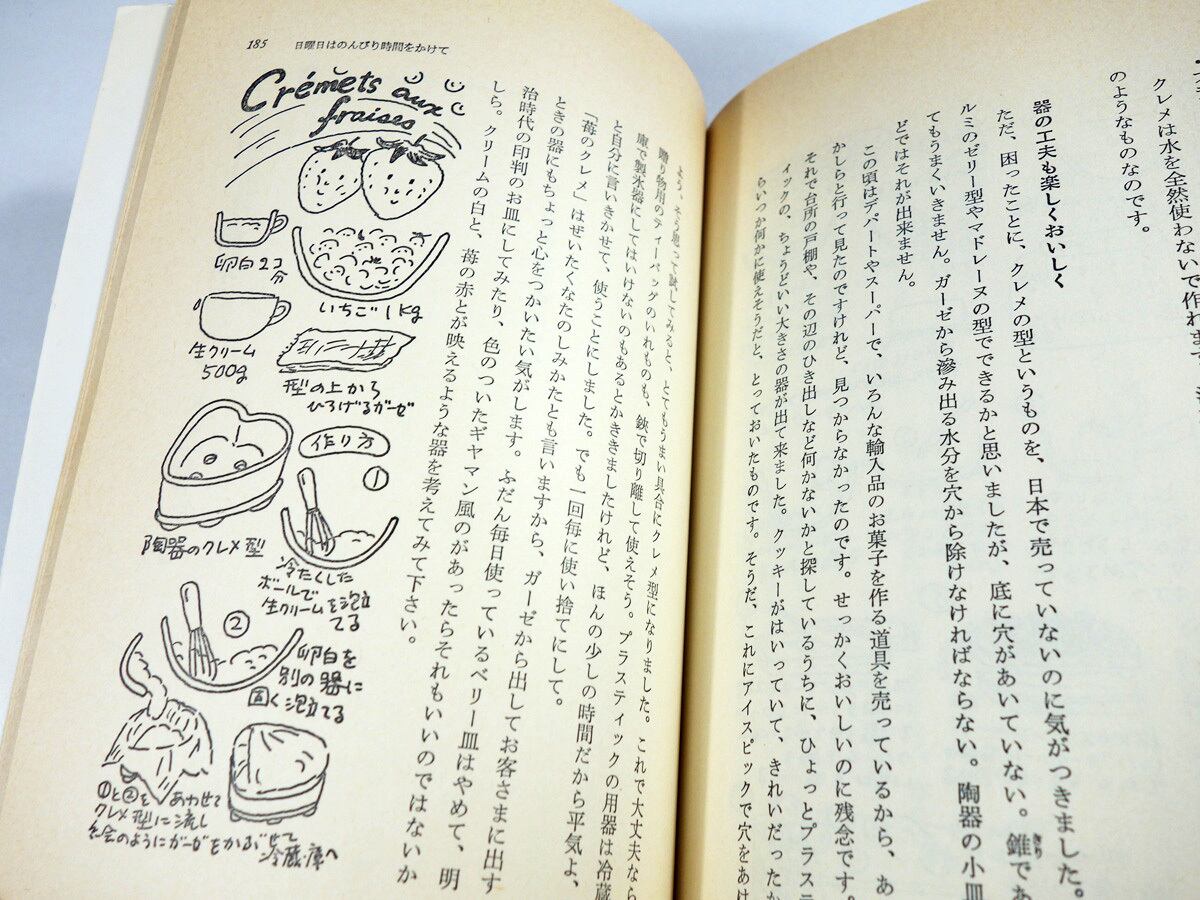 クレメは水を全然使わないで作れま
のようなものなのです。
器の工夫も楽しくおいしく
ただ、困ったことに、クレメの型というものを、日本で売っていないのに気がつきました。
ルミのゼリー型やマドレーヌの型でできるかと思いましたが、底に穴があいていない。錐であ
てもうまくいきません。ガーゼから滲み出る水分を穴から除けなければならない。陶器の小皿
どではそれが出来ません。
この頃はデパートやスーパーで、いろんな輸入品のお菓子を作る道具を売っているから、あ
かしらと行って見たのですけれど、見つからなかったのです。せっかくおいしいのに残念です。
それで台所の戸棚や、その辺のひき出しなど何かないかと探しているうちに、ひょっとプラス
ィックの、ちょうどいい大きさの器が出て来ました。クッキーがはいっていて、きれいだったか
らいつか何かに使えそうだと、とっておいたものです。そうだ、これにアイスピックで穴をあけ
185 日曜日はのんびり時間をかけて
よう、そう思って試してみると、とてもうまい具合にクレメ型になりました。これで大丈夫なら
贈り物用のティーバッグのいれものも、鋏で切り離して使えそう。プラスティックの用器は冷蔵
庫で製氷器にしてはいけないのもあるとかききましたけれど、ほんの少しの時間だから平気よ、
と自分に言いきかせて、使うことにしました。でも一回毎に使い捨てにして。
「苺のクレメ」はぜいたくなたのしみかたとも言いますから、ガーゼから出してお客さまに出す
ときの器にもちょっと心をつかいたい気がします。ふだん毎日使っているベリー皿はやめて、明
治時代の印判のお皿にしてみたり、色のついたギヤマン風のがあったらそれもいいのではないか
しら。クリームの白と、苺の赤とが映えるような器を考えてみて下さい。
Crémets aux
fraises
卵白2コ
分
いちご1kg
生クリーム
500g
型の上から
ひろげるガーゼ
作り方
①
陶器のクレメ型
冷たくした
ボールで
生クリームを泡立
てる
②
卵白を
別の器に
固く泡立てる
①と②をあわせて
クレメ型に流し
絵のようにガーゼをかぶせて
冷蔵庫へ